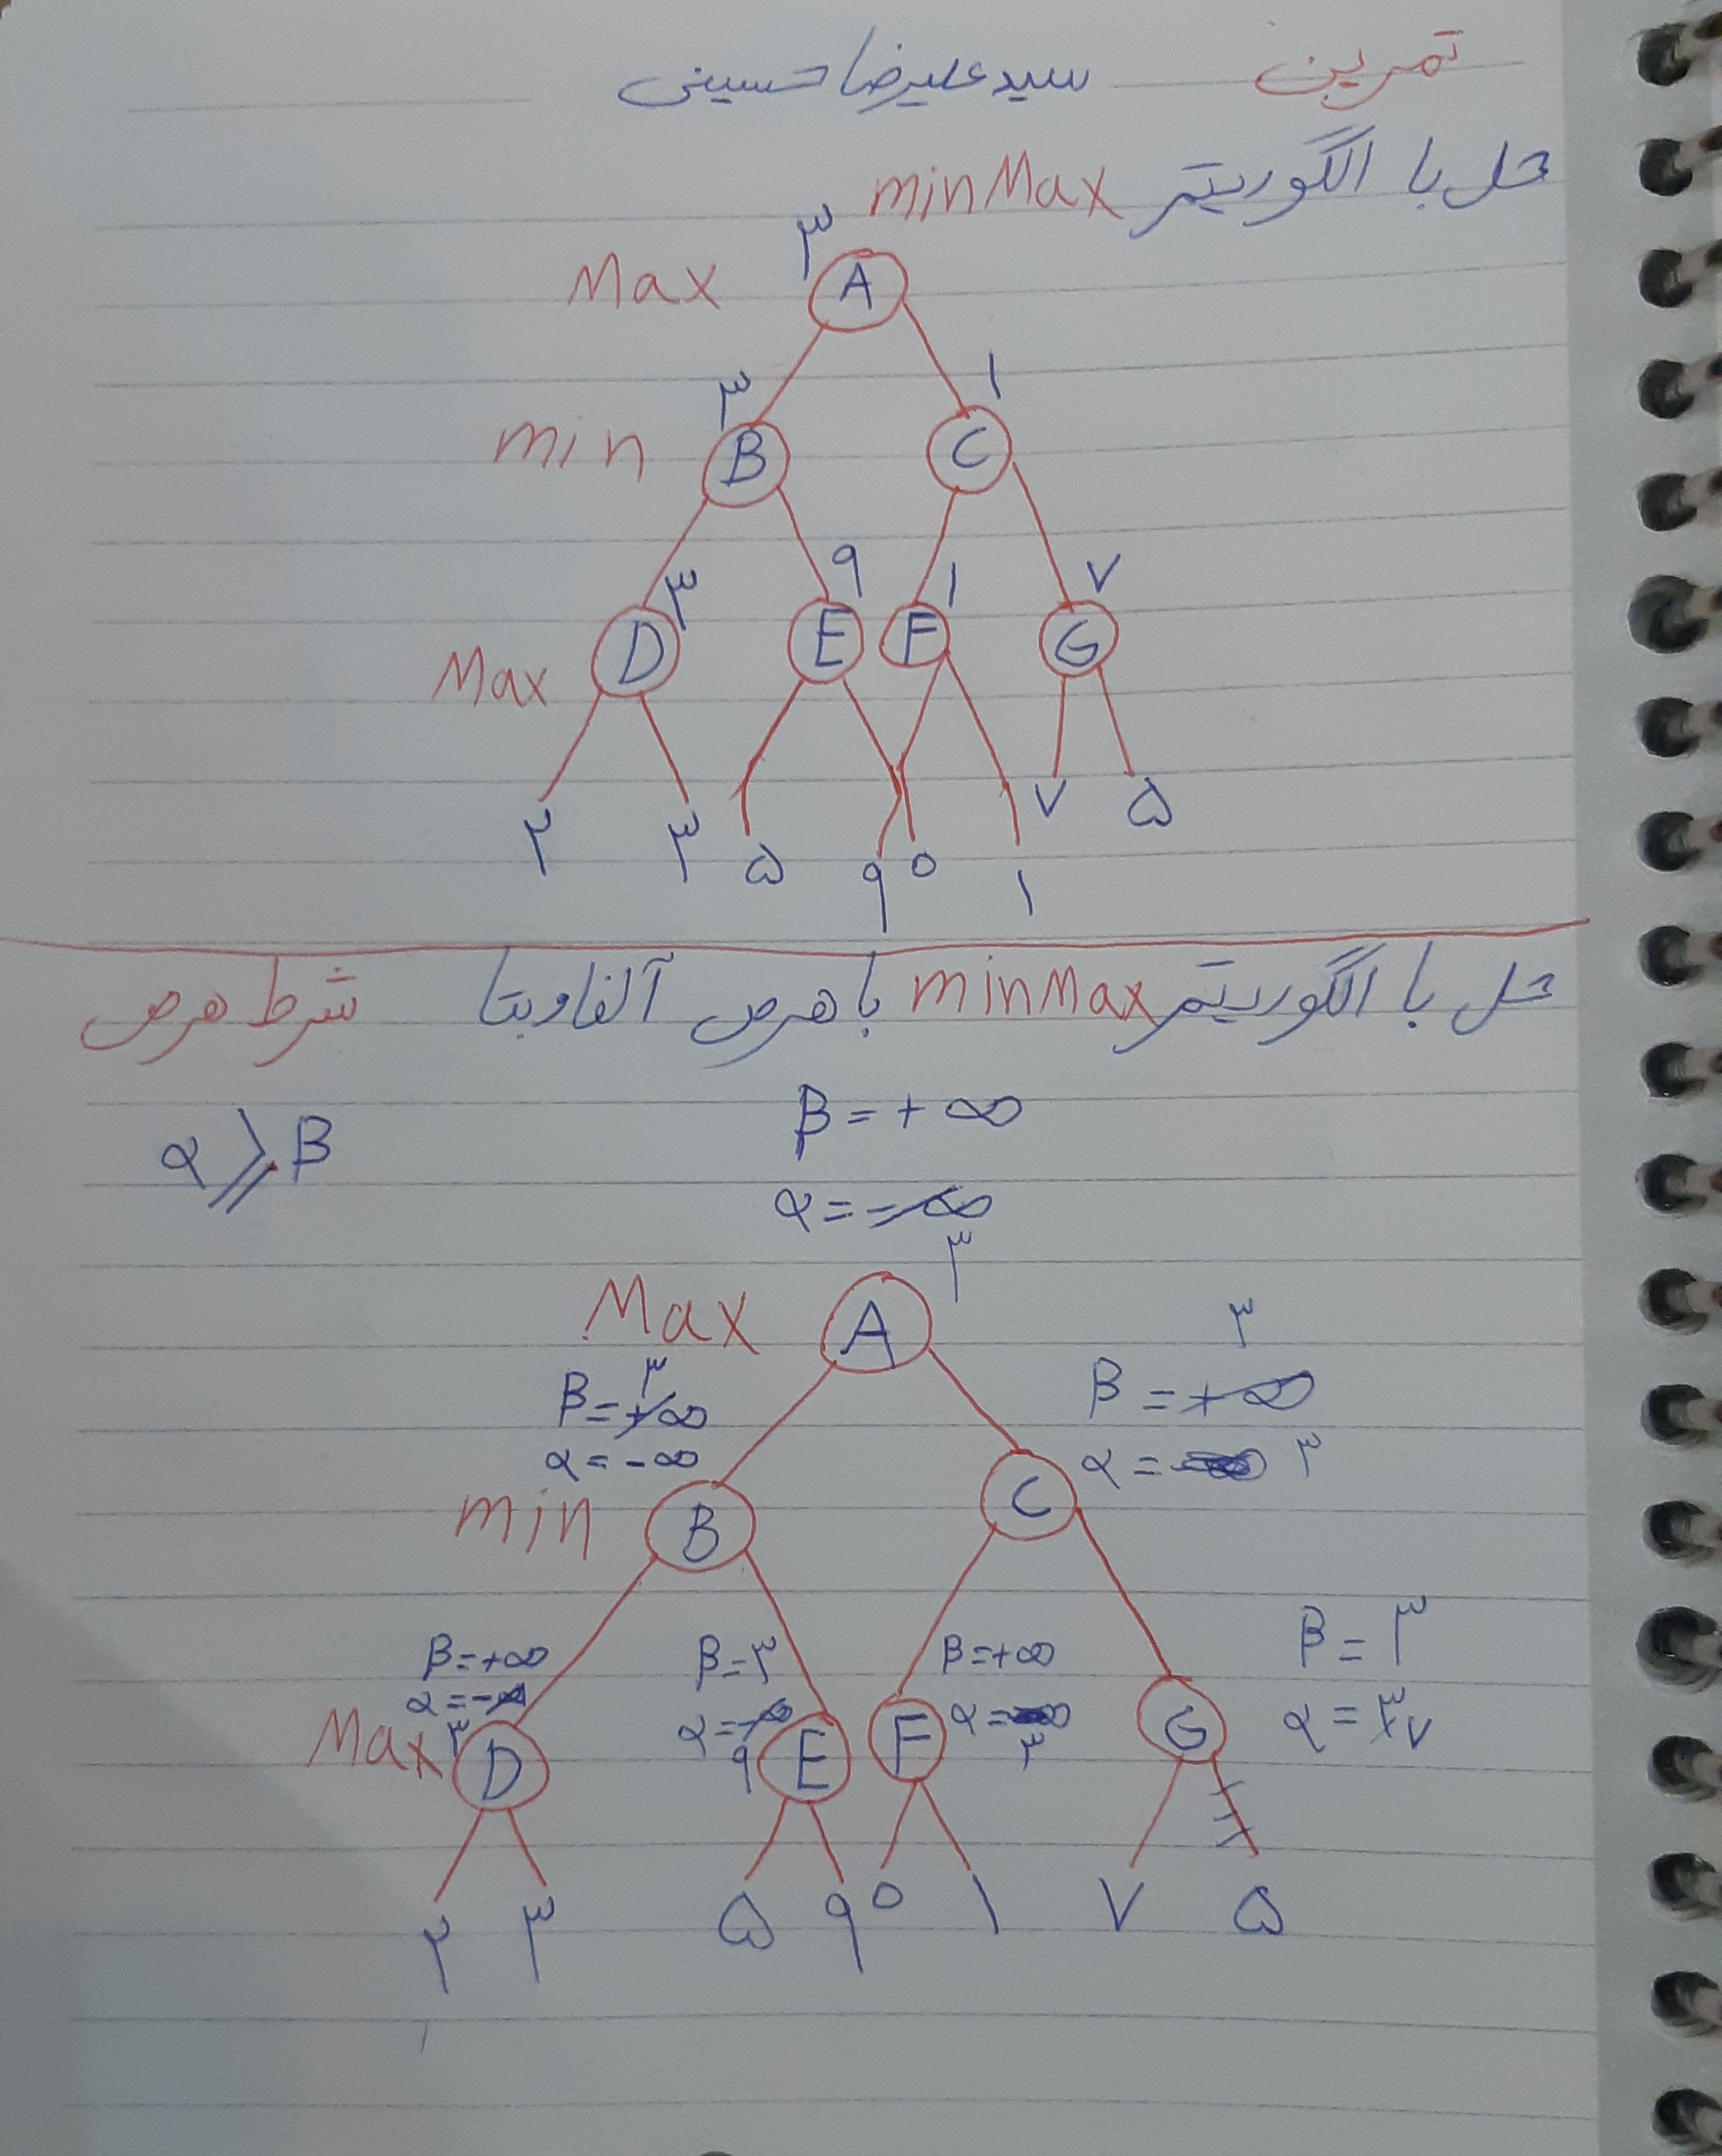 تمرین سید علیرضا حسینی
حل با الگوریتم minMax
۳
Max A
۳ ۱
min B C
۳ ۹ ۱ ۷
Max D E F G
۲ ۳ ۵ ۹ ۰ ۱ ۷ ۵
حل با الگوریتم minMax با هرس آلفا و بتا شرط هرس
α ⩾ β
β = + ∞
α = - ∞
۳
Max A
β = + ∞ ۳
α = - ∞
۳
β = + ∞
α = ۳
min B C
β = + ∞
α = - ∞ ۳
β = ۳
α = - ∞ ۹
β = + ∞
α = ۳
β = ۳
α = ۳ ۷
Max D E F G
۲ ۳ ۵ ۹ ۰ ۱ ۷ ۵